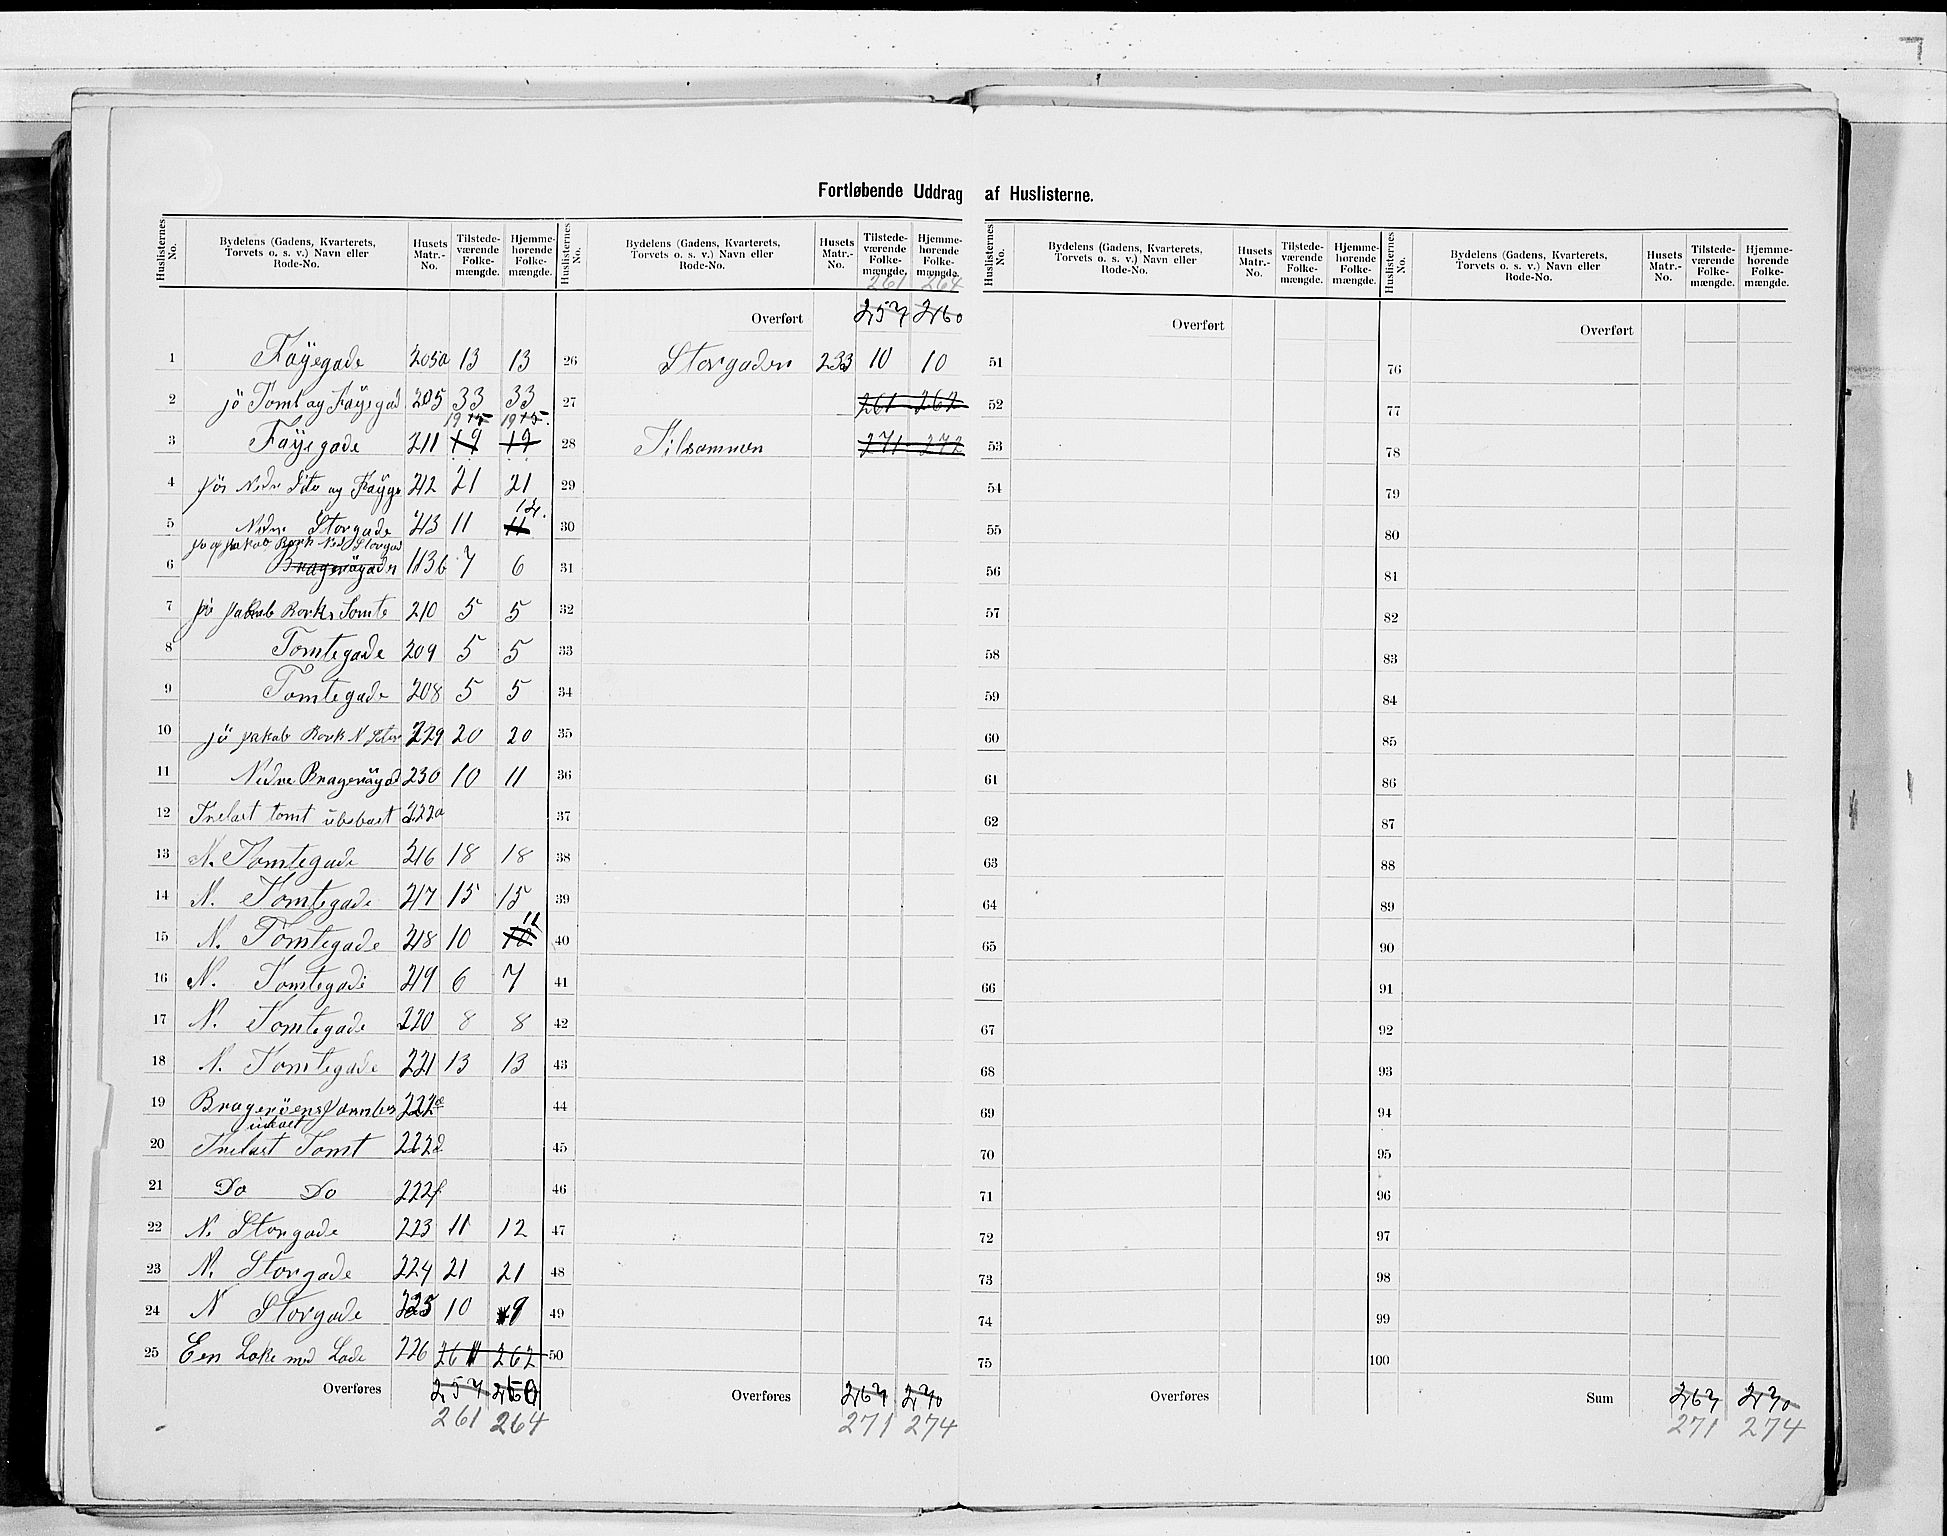 Fortløbende Uddrag af Huslisterne.
Huslisternes No. | Bydelens (Gadens, Kvarterets, Torvets o. s. v.) Navn eller Rode-No. | Husets Matr.-No. | Tilstede-værende Folke-mængde. | Hjemme-hørende Folke-mængde. | Huslisternes No. | Bydelens (Gadens, Kvarterets, Torvets o. s. v.) Navn eller Rode-No. | Husets Matr.-No. | Tilstede-værende Folke-mængde. | Hjemme-hørende Folke-mængde. | Huslisternes No. | Bydelens (Gadens, Kvarterets, Torvets o. s. v.) Navn eller Rode-No. | Husets Matr.-No. | Tilstede-værende Folke-mængde. | Hjemme-hørende Folke-mængde. | Huslisternes No. | Bydelens (Gadens, Kvarterets, Torvets o. s. v.) Navn eller Rode-No. | Husets Matr.-No. | Tilstede-værende Folke-mængde. | Hjemme-hørende Folke-mængde.
261 264
Overført 257 260 Overført Overført
1 Fayegade 205a 13 13 26 Storgaden 233 10 10 51 76
2 jö Tomt og Fayegad 205 33 33 27 261 262 52 77
3 Fayegade 211 19 19 28 Tilsammen 271 272 53 78
4 Nedr Sto og Fayge 212 21 21 29 54 79
5 Nedre Storgade 213 11 11 12. 30 55 80
Jakob Bork Ned Storgad
6 Bragenögaden 113b 7 6 31 56 81
7 Jakob Borks Tomte 210 5 5 32 57 82
8 Tomtegade 209 5 5 33 58 83
9 Tomtegade 208 5 5 34 59 84
10 jö Jakob Bork N Stor 229 20 20 35 60 85
11 Nedre Bragenögad 230 10 11 36 61 86
12 Trelast tomt 222a 37 62 87
13 N. Tomtegade 216 18 18 38 63 88
14 N. Tomtegade 217 15 15 39 64 89
15 N. Tomtegade 218 10 10 11 40 65 90
16 N. Tomtegade 219 6 7 41 66 91
17 N. Tomtegade 220 8 8 42 67 92
18 N. Tomtegade 221 13 13 43 68 93
19 Bragenöens 222e 44 69 94
20 Trelast Tomt 222d 45 70 95
21 Do Do 222f 46 71 96
22 N. Storgade 223 11 12 47 72 97
23 N. Storgade 224 21 21 48 73 98
24 N Storgade 225 10 9 49 74 99
25 Een Løke med Lade 226 261 262 50 75 100
Overføres 257 260 Overføres 267 270 Overføres Sum 267 270
261 264 271 274 271 274